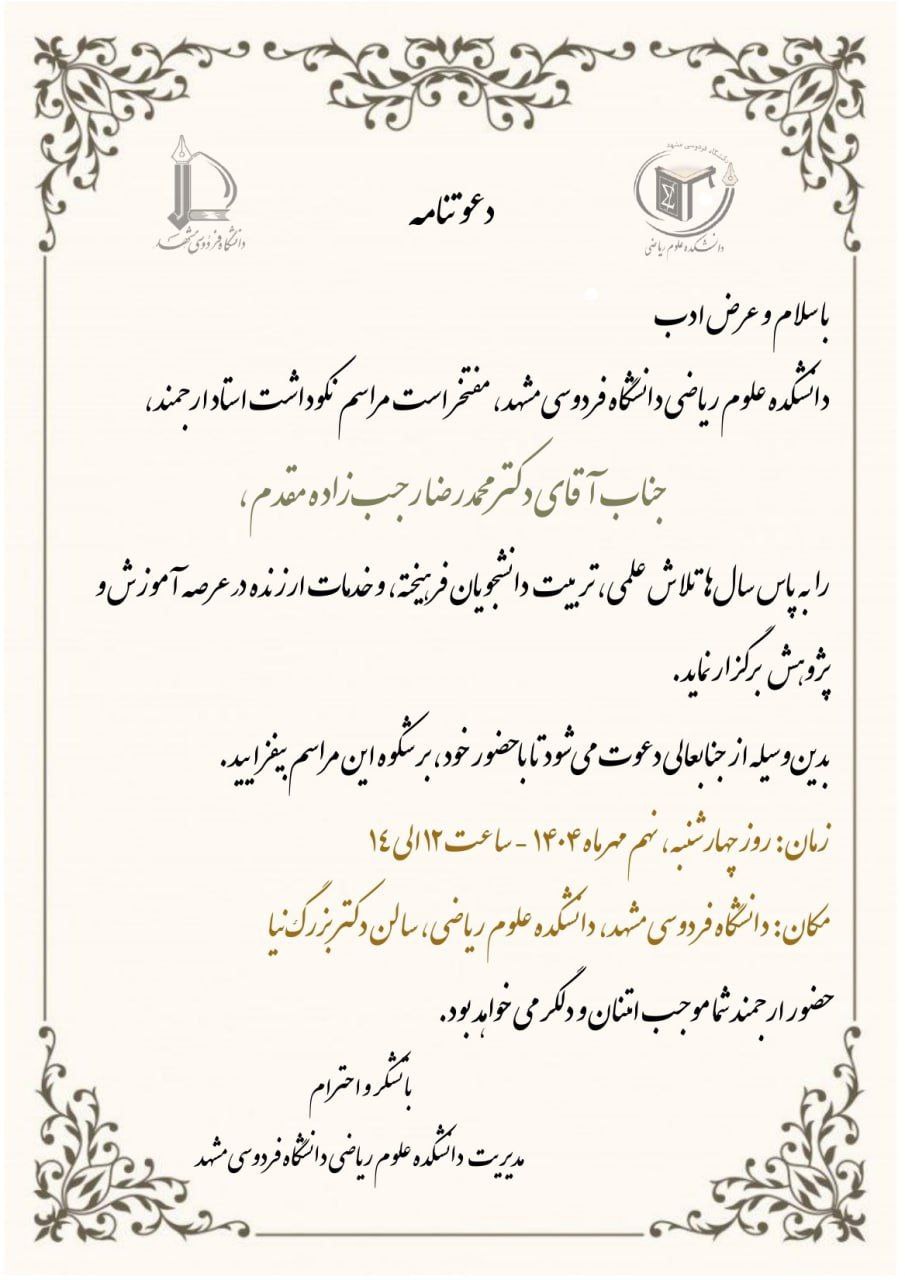 دانشگاه فردوسی مشهد
دانشکده علوم ریاضی
دعوتنامه
دانشگاه فردوسی مشهد
با سلام و عرض ادب
دانشکده علوم ریاضی دانشگاه فردوسی مشهد، مفتخر است مراسم نکوداشت استاد ارجمند،
جناب آقای دکتر محمدرضا رجب‌زاده مقدم،
را به پاس سال‌ها تلاش علمی، تربیت دانشجویان فرهیخته، و خدمات ارزنده در عرصه آموزش و
پژوهش برگزار نماید.
بدین‌وسیله از جنابعالی دعوت می‌شود تا با حضور خود، بر شکوه این مراسم بیفزایید.
زمان: روز چهارشنبه، نهم مهرماه ۱۴۰۴ - ساعت ۱۲ الی ۱۴
مکان: دانشگاه فردوسی مشهد، دانشکده علوم ریاضی، سالن دکتر بزرگ‌نیا
حضور ارجمند شما موجب امتنان و دلگرمی خواهد بود.
با تشکر و احترام
مدیریت دانشکده علوم ریاضی دانشگاه فردوسی مشهد